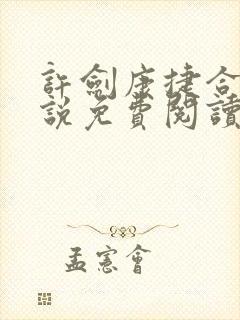 許劍康捷合
說免費閱讀
孟憲會